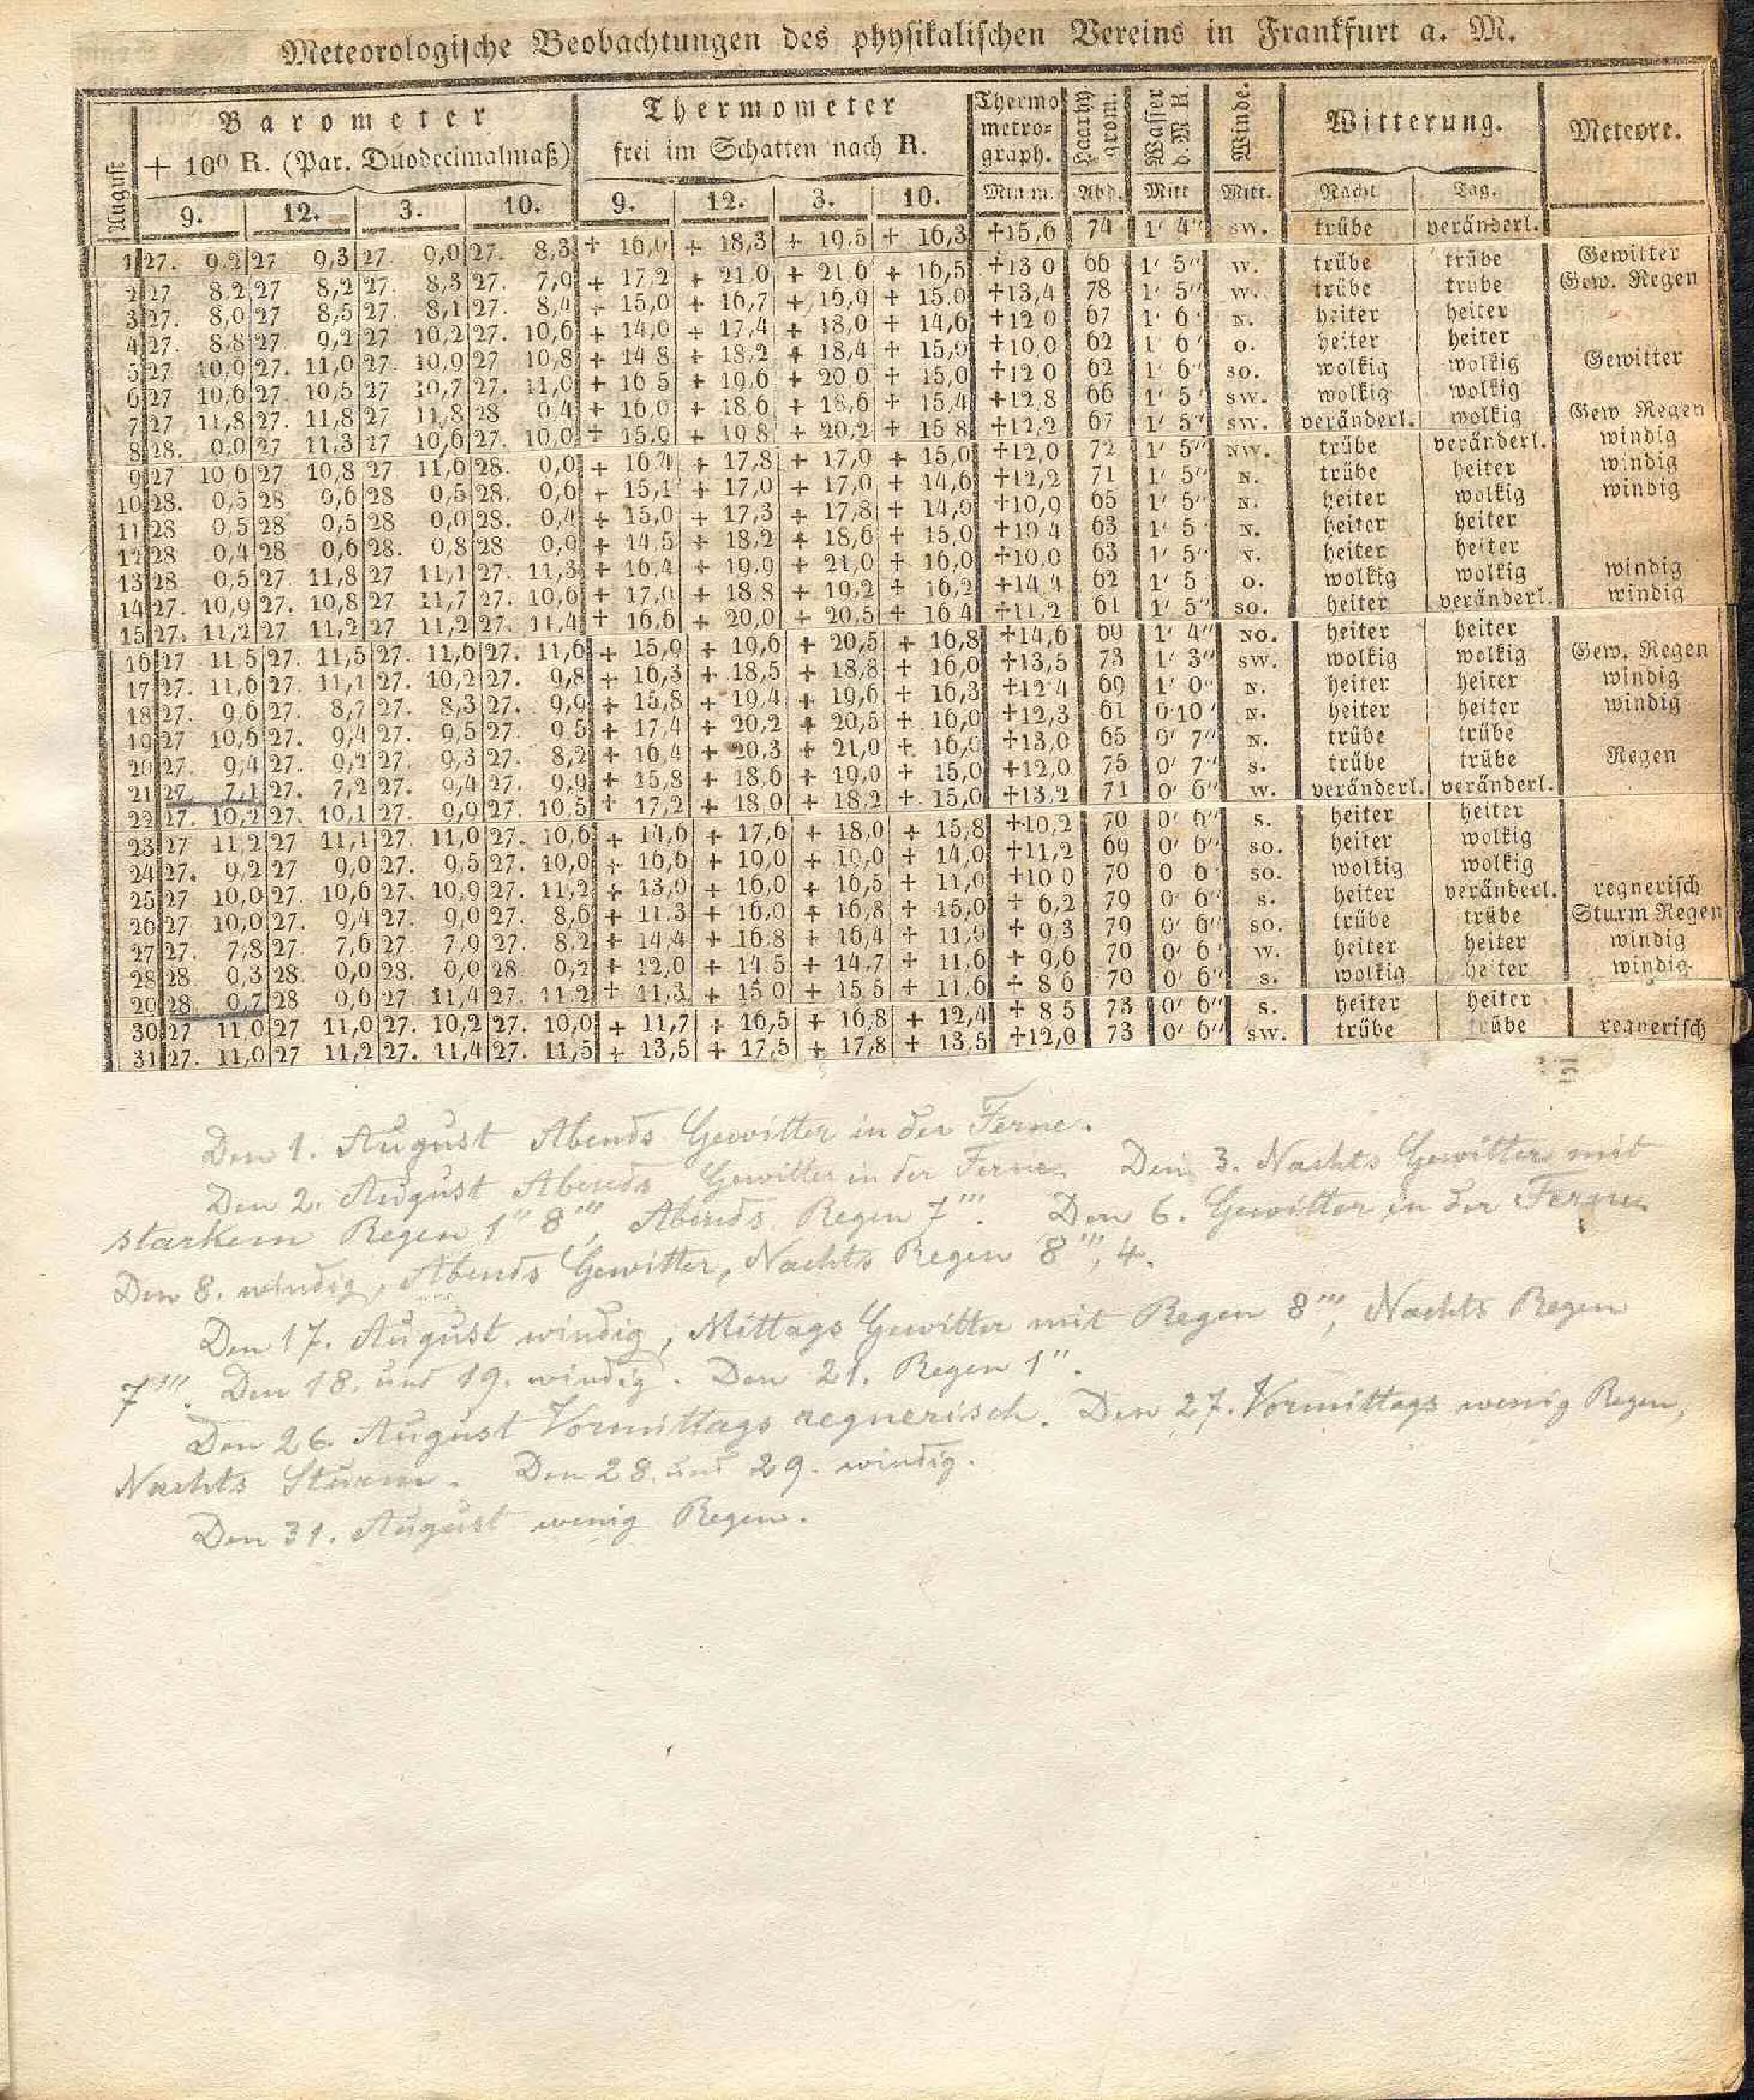 Meteorologische Beobachtungen des physikalischen Vereins in Frankfurt a. M.
August | Barometer + 10⁰ R. (Par. Duodecimalmaß) | Thermometer frei im Schatten nach R. | Thermometrograph. | Haarhygrom. | Wasser d. M | Winde. | Witterung. | Meteore.
9. | 12. | 3. | 10. | 9. | 12. | 3. | 10. | Minim. | Abd. | Mitt | Mitt. | Nacht | Tag.
1 | 27. 9,2 | 27 9,3 | 27. 9,0 | 27. 8,3 | + 16,0 | + 18,3 | + 19,5 | + 16,3 | +15,6 | 74 | 1' 4" | SW. | trübe | veränderl.
2 | 27 8,2 | 27 8,2 | 27. 8,3 | 27. 7,9 | + 17,2 | + 21,0 | + 21 6 | + 16,5 | +13 0 | 66 | 1' 5" | W. | trübe | trübe | Gewitter
3 | 27. 8,0 | 27 8,5 | 27. 8,1 | 27. 8,4 | + 15,0 | + 16,7 | + 16,9 | + 15,0 | +13,4 | 78 | 1' 5" | W. | trübe | trübe | Gew. Regen
4 | 27. 8,8 | 27. 9,2 | 27 10,2 | 27. 10,6 | + 14,0 | + 17,4 | + 18,0 | + 14,6 | +12 0 | 67 | 1' 6" | N. | heiter | heiter
5 | 27 10,9 | 27. 11,0 | 27. 10,9 | 27 10,8 | + 14 8 | + 18,2 | + 18,4 | + 15,0 | +10,0 | 62 | 1' 6" | O. | heiter | heiter
6 | 27 10,6 | 27. 10,5 | 27 10,7 | 27. 11,0 | + 16 5 | + 19,6 | + 20 0 | + 15,0 | +12 0 | 62 | 1' 6" | SO. | wolkig | wolkig | Gewitter
7 | 27 11,8 | 27. 11,8 | 27 11,8 | 28 0,4 | + 16,0 | + 18 6 | + 18,6 | + 15,4 | +12,8 | 66 | 1' 5" | SW. | wolkig | wolkig
8 | 28. 0,0 | 27 11,3 | 27 10,6 | 27. 10,0 | + 15,9 | + 19 8 | + 20,2 | + 15 8 | +12,2 | 67 | 1' 5" | SW. | veränderl. | wolkig | Gew Regen
9 | 27 10 6 | 27 10,8 | 27 11,6 | 28. 0,0 | + 16 4 | + 17,8 | + 17,9 | + 15,0 | +12,0 | 72 | 1' 5" | NW. | trübe | veränderl. | windig
10 | 28. 0,5 | 28 0,6 | 28 0,5 | 28. 0,6 | + 15,1 | + 17,0 | + 17,0 | + 14,6 | +12,2 | 71 | 1' 5" | N. | trübe | heiter | windig
11 | 28 0,5 | 28 0,5 | 28 0,0 | 28. 0,4 | + 15,0 | + 17,3 | + 17,8 | + 14,0 | +10,9 | 65 | 1' 5" | N. | heiter | wolkig | windig
12 | 28 0,4 | 28 0,6 | 28. 0,8 | 28 0,9 | + 14,5 | + 18,2 | + 18,6 | + 15,0 | +10 4 | 63 | 1' 5" | N. | heiter | heiter
13 | 28 0,5 | 27 11,8 | 27 11,1 | 27. 11,3 | + 16,4 | + 19,9 | + 21,0 | + 16,0 | +10,0 | 63 | 1' 5" | N. | heiter | heiter
14 | 27. 10,9 | 27. 10,8 | 27 11,7 | 27. 10,6 | + 17,0 | + 18 8 | + 19,2 | + 16,2 | +14 4 | 62 | 1' 5 | O. | wolkig | wolkig | windig
15 | 27. 11,2 | 27 11,2 | 27 11,2 | 27. 11,4 | + 16,6 | + 20,0 | + 20,5 | + 16 4 | +11,2 | 61 | 1' 5" | SO. | heiter | veränderl. | windig
16 | 27 11 5 | 27. 11,5 | 27. 11,6 | 27. 11,6 | + 15,9 | + 19,6 | + 20,5 | + 16,8 | +14,6 | 60 | 1' 4" | NO. | heiter | heiter
17 | 27. 11,6 | 27. 11,1 | 27. 10,2 | 27. 9,8 | + 16,3 | + 18,5 | + 18,8 | + 16,0 | +13,5 | 73 | 1' 3" | SW. | wolkig | wolkig | Gew. Regen
18 | 27. 9 6 | 27. 8,7 | 27. 8,3 | 27. 9,9 | + 15,8 | + 19,4 | + 19,6 | + 16,3 | +12 4 | 69 | 1' 0" | N. | heiter | heiter | windig
19 | 27 10,5 | 27. 9,4 | 27. 9,5 | 27 9 5 | + 17,4 | + 20,2 | + 20,5 | + 16,0 | +12,3 | 61 | 0' 10" | N. | heiter | heiter | windig
20 | 27. 9,4 | 27. 9,2 | 27. 9,3 | 27. 8,2 | + 16,4 | + 20,3 | + 21,0 | + 16,0 | +13,0 | 65 | 0' 7" | N. | trübe | trübe
21 | 27. 7,1 | 27. 7,2 | 27. 9,4 | 27. 9,9 | + 15,8 | + 18,6 | + 19,0 | + 15,0 | +12,0 | 75 | 0' 7" | S. | trübe | trübe | Regen
22 | 27. 10,2 | 27. 10,1 | 27. 9,9 | 27. 10,5 | + 17,2 | + 18 0 | + 18,2 | + 15,0 | +13,2 | 71 | 0' 6" | W. | veränderl. | veränderl.
23 | 27 11,2 | 27 11,1 | 27. 11,0 | 27. 10,6 | + 14,6 | + 17,6 | + 18,0 | + 15,8 | +10,2 | 70 | 0' 6" | S. | heiter | heiter
24 | 27. 9,2 | 27 9,0 | 27. 9,5 | 27. 10,0 | + 16,6 | + 19,0 | + 19,0 | + 14,0 | +11,2 | 69 | 0' 6" | SO. | heiter | wolkig
25 | 27 10,0 | 27. 10,6 | 27. 10,9 | 27. 11,2 | + 13,9 | + 16,0 | + 16,5 | + 11,0 | +10 0 | 70 | 0 6 | SO. | wolkig | wolkig
26 | 27 10,0 | 27. 9,4 | 27. 9,0 | 27. 8,6 | + 11,3 | + 16,0 | + 16,8 | + 15,0 | + 6,2 | 79 | 0' 6" | S. | heiter | veränderl. | regnerisch
27 | 27. 7,8 | 27. 7,6 | 27. 7,9 | 27. 8,2 | + 14,4 | + 16 8 | + 16,4 | + 11,9 | + 9,3 | 79 | 0' 6" | SO. | trübe | trübe | Sturm Regen
28 | 28 0,3 | 28. 0,0 | 28. 0,0 | 28 0,2 | + 12,0 | + 14 5 | + 14,7 | + 11,6 | + 9,6 | 70 | 0' 6" | W. | heiter | heiter | windig
29 | 28. 0,7 | 28 0,6 | 27 11,4 | 27. 11 2 | + 11,3 | + 15 0 | + 15 5 | + 11,6 | + 8 6 | 70 | 0' 6" | S. | wolkig | heiter | windig
30 | 27 11 0 | 27 11,0 | 27. 10,2 | 27. 10,0 | + 11,7 | + 16,5 | + 16,8 | + 12,4 | + 8 5 | 73 | 0' 6" | S. | heiter | heiter
31 | 27. 11,0 | 27 11,2 | 27. 11,4 | 27. 11,5 | + 13,5 | + 17,5 | + 17,8 | + 13,5 | +12,0 | 73 | 0' 6" | SW. | trübe | trübe | regnerisch
Den 1. August Abends Gewitter in der Ferne.
Den 2. August Abends Gewitter in der Ferne. Den 3. Nachts Gewitter mit
starkem Regen 1" 8''', Abends Regen 7'''. Den 6. Gewitter in der Ferne
Den 8. windig, Abends Gewitter, Nachts Regen 8''', 4.
Den 17. August windig, Mittags Gewitter mit Regen 8''', Nachts Regen
7'''. Den 18. und 19. windig. Den 21. Regen 1".
Den 26. August Vormittags regnerisch. Den 27. Vormittags wenig Regen,
Nachts Sturm. Den 28. und 29. windig.
Den 31. August wenig Regen.